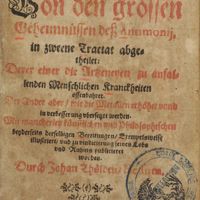 Von den grossen
Geheimnüssen deß Antimonij,
in zweene Tractat abge-
theilet:
Derer einer die Artzeneyen zu anfal-
lenden Menschlichen Kranckheiten
offenbahret.
Der Ander aber / wie die Metallen erhöhet vnnd
in verbesserung vbersetzet werden.
Mit mancherley künstlichen vnd Philosophischen
beyderseits derselbigen Bereitungen / Exempelsweise
illustriret / vnd zu
vnd Rahum publiciret
worden.
Durch Johan Thölden